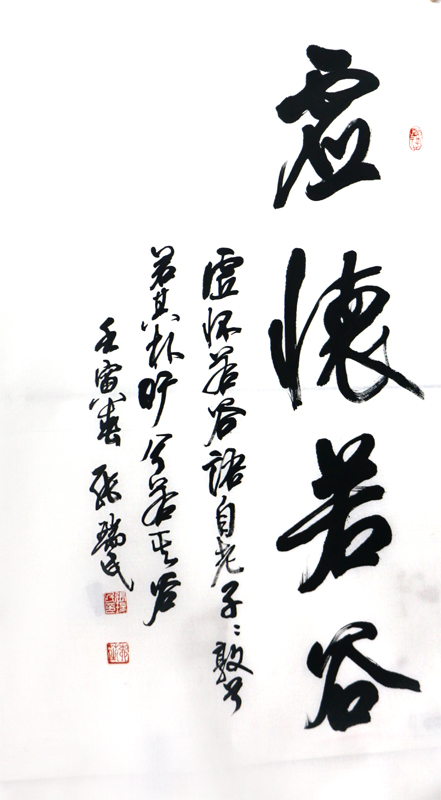 虚怀若谷
虚怀若谷语自老子：敦兮
若其朴旷兮若其谷
壬寅春 张瑞民